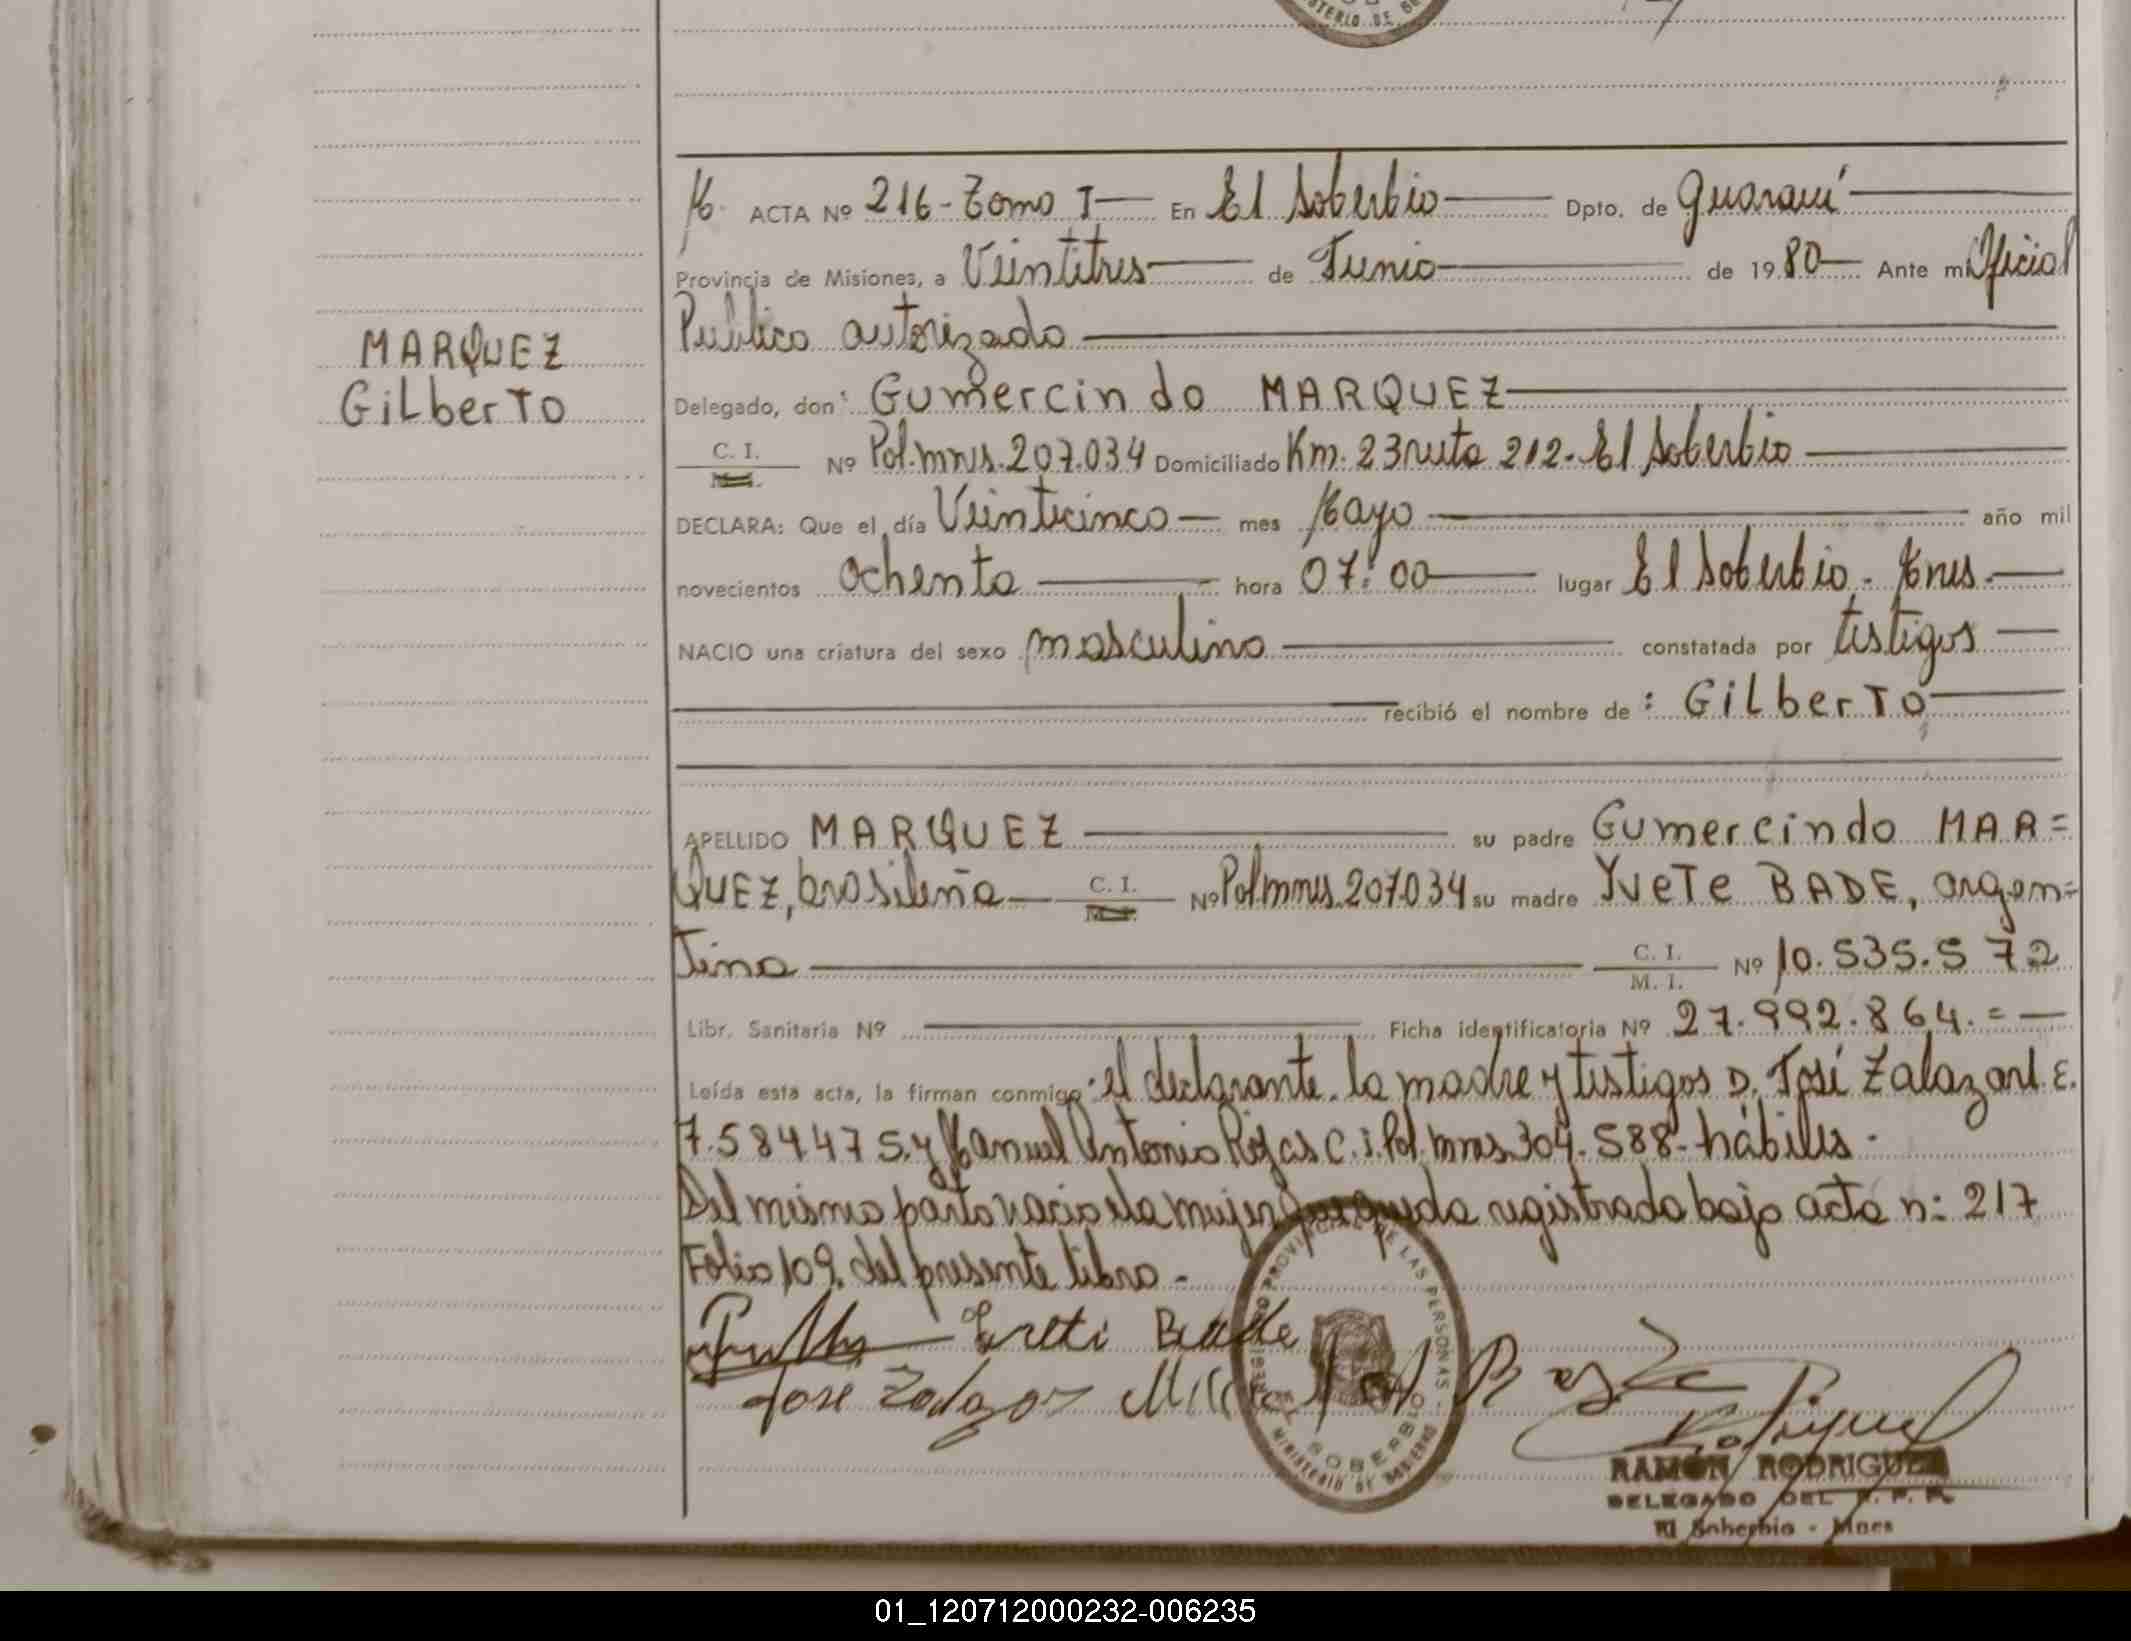 MINISTERIO DE GO
M. ACTA Nº 216 - Tomo I — En El Soberbio — Dpto. de Guaraní —
Provincia de Misiones, a Veintitres — de Junio — de 1980 — Ante mi Oficial
Publico autorizado —
MARQUEZ
Gilberto
Delegado, don: Gumercindo MARQUEZ —
C. I. Nº Pol.mnes.207.034 Domiciliado Km. 23 ruta 212 - El Soberbio —
DECLARA: Que el día Veinticinco — mes Mayo — año mil
novecientos ochenta — hora 07:00 — lugar El Soberbio - Mnes. —
NACIO una criatura del sexo masculino — constatada por testigos —
— recibió el nombre de: Gilberto —
APELLIDO MARQUEZ — su padre Gumercindo MAR=
QUEZ, brasileña — C. I. Nº Pol.mnes.207.034 su madre Yvete BADE, argen=
tina — C. I. M. I. Nº 10.535.572
Libr. Sanitaria Nº — Ficha identificatoria Nº 27.992.864.= —
Leída esta acta, la firman conmigo: el declarante, la madre y testigos D. José Zalazar L.E.
7.584475. y Manuel Antonio Rojas C.i. Pol. mnes 304.588 - hábiles -
Del mismo parto nacio ela mujer que queda registrada bajo acta n: 217
Folio 109. del presente libro -
Ireti Bade
José Zalazar
REGISTRO PROVINCIAL DE LAS PERSONAS - EL SOBERBIO MINISTERIO DE GOBIERNO
RAMÓN RODRIGUEZ
DELEGADO DEL R. P. P.
El Soberbio - Mnes
01_120712000232-006235